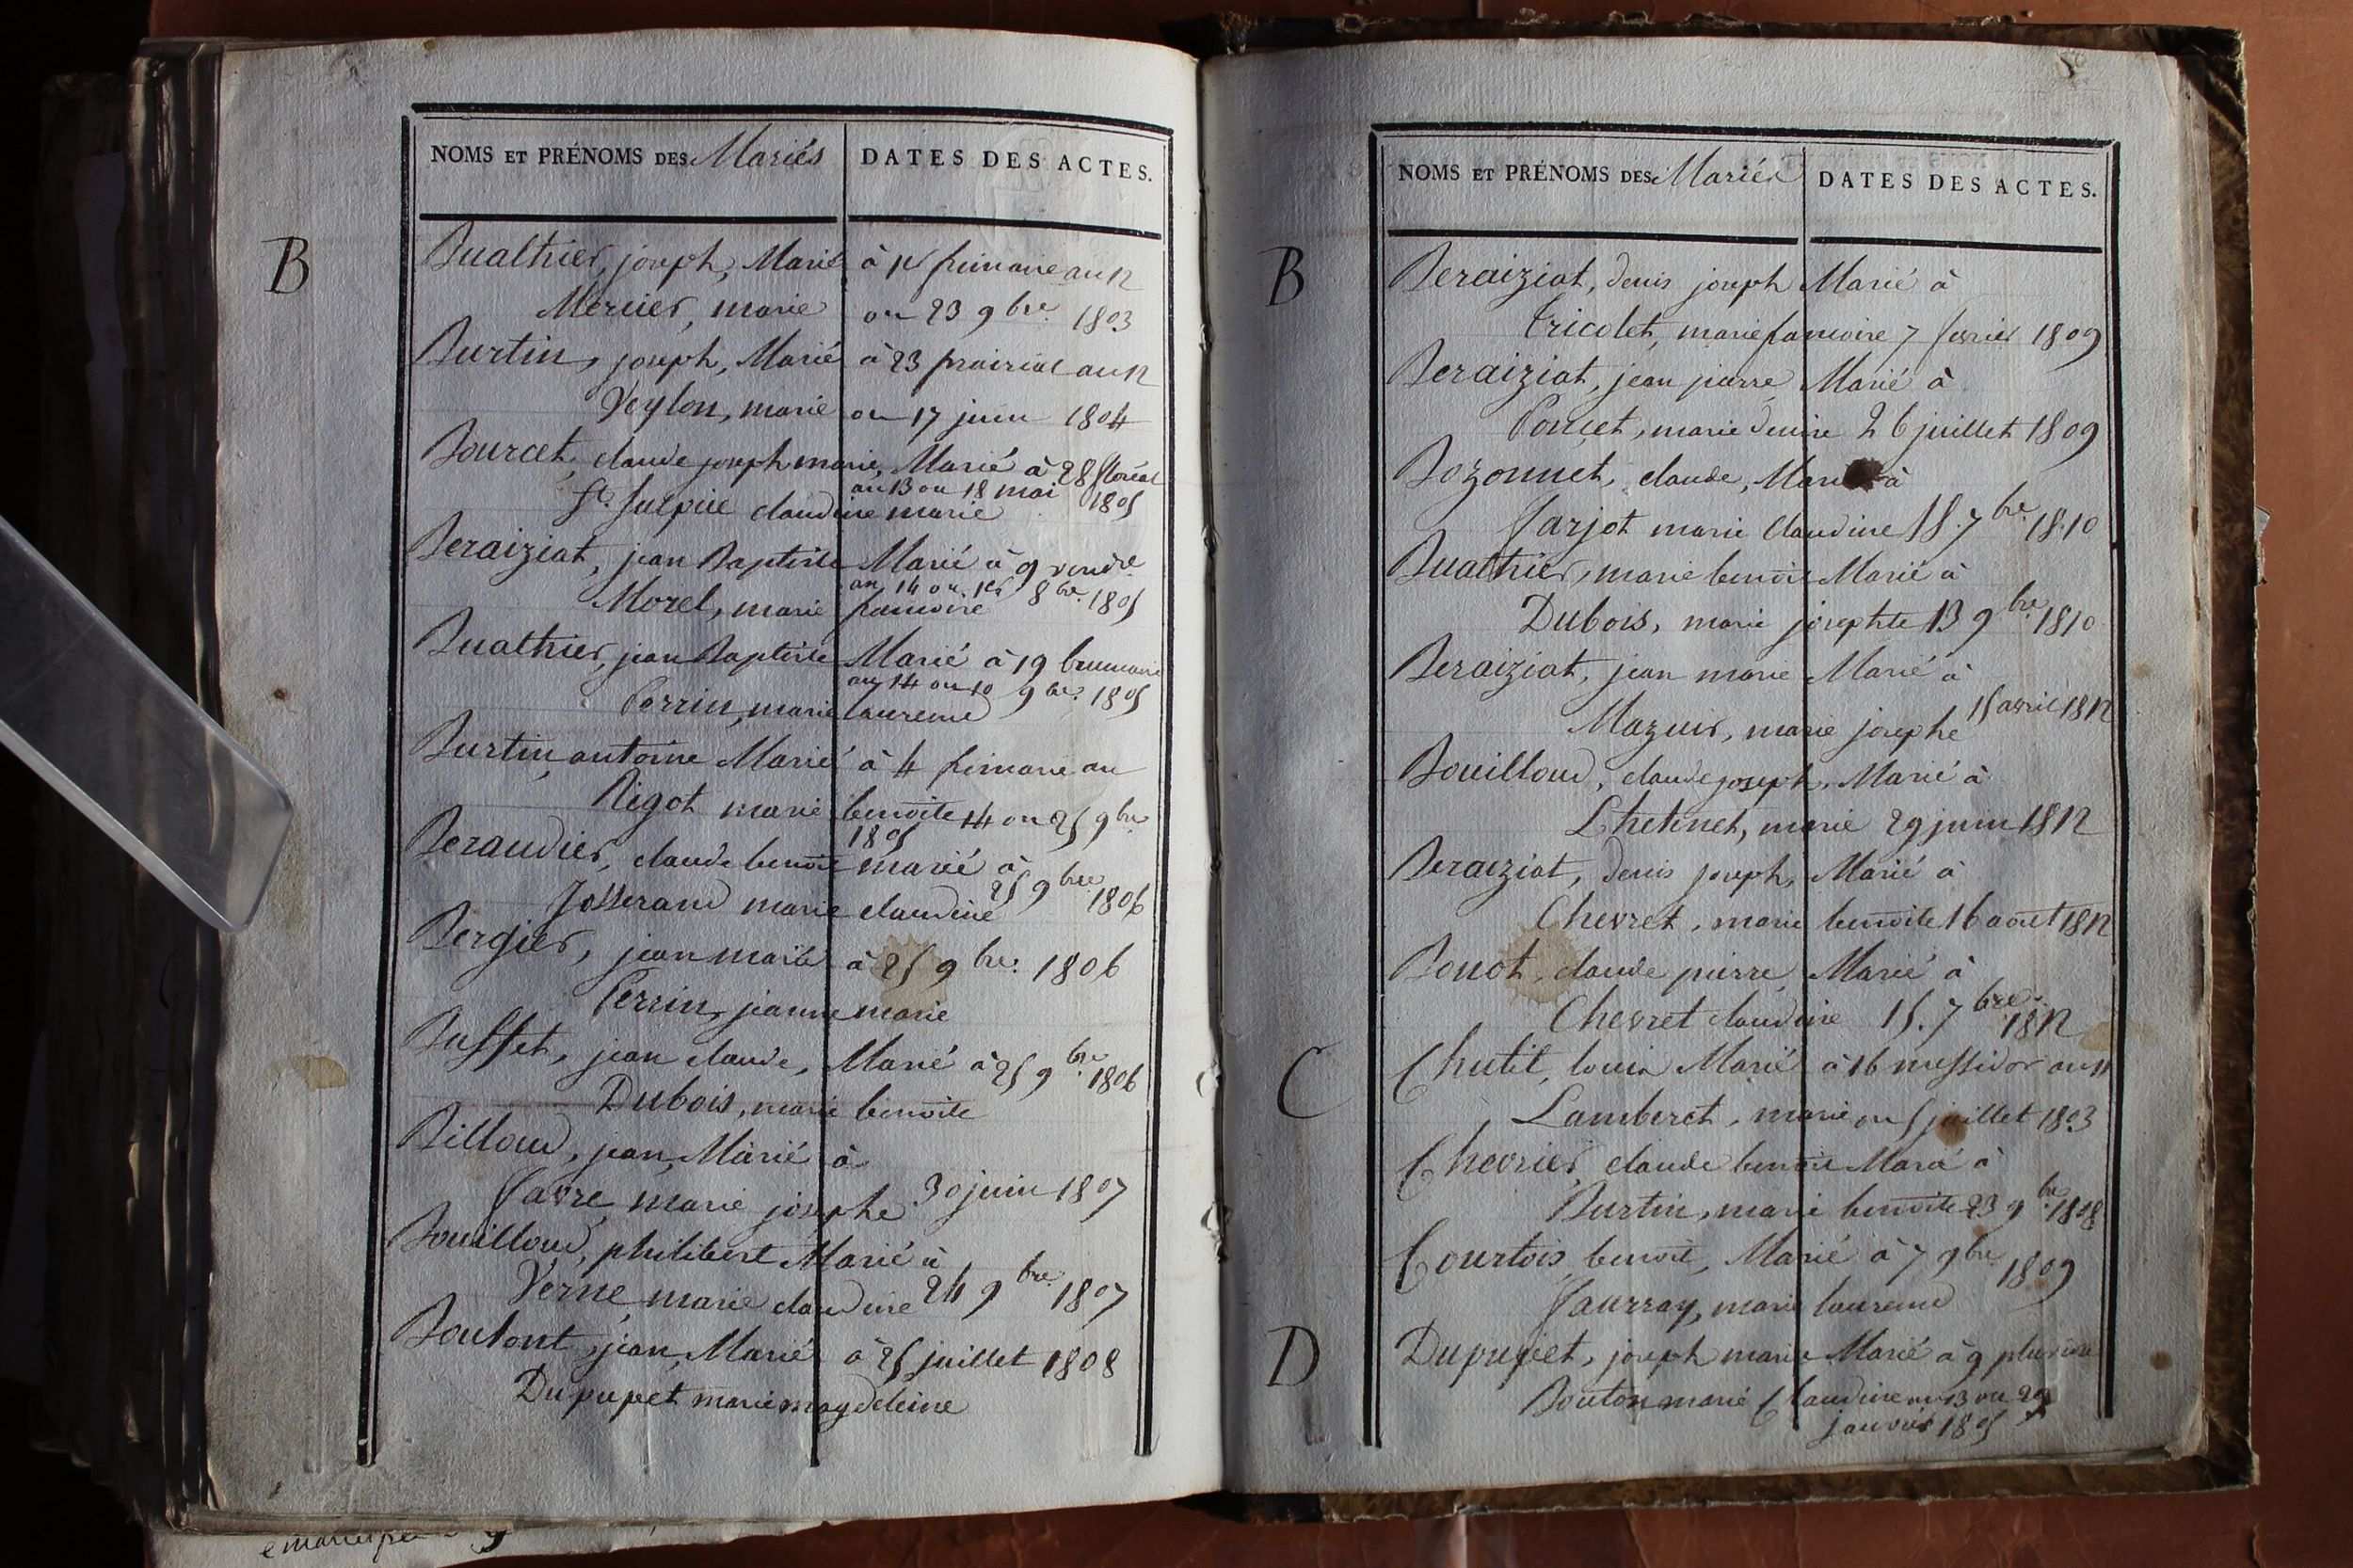 NOMS ET PRÉNOMS DES Mariés DATES DES ACTES.
B
Bualthier, joseph, Marié à 1er frimaire an 12
Mercier, marie ou 23 9bre. 1803
Burtin, joseph, Marié à 23 prairial an 12
Veylon, marie ou 17 juin 1804
Bourcet, claude joseph marie, Marié à 28 floréal
an 13 ou 18 mai 1805
St. Sulpice claudine marie
Beraiziat, jean Baptiste Marié à 9 vendre
an 14 ou 1er 8bre. 1805
Morel, marie francoise
Bualthier, jean Baptiste Marié à 19 brumaire
an 14 ou 10 9bre. 1805
Perrin, marie laurence
Burtin, antoine Marié à 4 frimaire an
Rigot marie benoite 14 ou 25 9bre
1805
Beraudier, claude benoit marié à
25 9bre 1806
Josserand marie claudine
Bergier, jean marié à 25 9bre. 1806
Perrin, jeanne marie
Buffet, jean claude, Marié à 25 9bre. 1806
Dubois, marie benoite
Billoud, jean, Marié à
Favre, marie josephe 30 juin 1807
Bouilloud, philibert Marié à
Verne, marie claudine 24 9bre 1807
Boutont, jean, Marié à 25 juillet 1808
Dupupet marie magdeleine
NOMS ET PRÉNOMS DES Mariés DATES DES ACTES.
B
Beraiziat, denis joseph Marié à
Tricolet, marie francoise 7 fevrier 1809
Beraiziat, jean pierre, Marié à
Poncet, marie denise 26 juillet 1809
Bozonnet, claude, Marié à
Farjot marie Claudine 18. 7bre. 1810
Bualthier, marie benoit Marié à
Dubois, marie josephte 13 9bre. 1810
Beraiziat, jean marie Marié à
Mazuir, marie josephe 15 avril 1812
Bouilloud, claude joseph, Marié à
Lhetinet, marie 29 juin 1812
Beraiziat, denis joseph, Marié à
Chevret, marie benoite 16 aout 1812
Bonot, claude pierre, Marié à
Chevret claudine 15. 7bre. 1812
C
Chutit, louis Marié à 16 messidor an 11
Lamberet, marie ou 5 juillet 1803
Chevrier, claude benoit Marié à
Burtin, marie benoite 23 9bre. 1808
Courtois, benoit, Marié à 7 9bre 1809
Faurray, marie laurence
D
Dupupet, joseph marie Marié à 9 pluviose
Bouton marie Claudine an 13 ou 29
janvier 1805